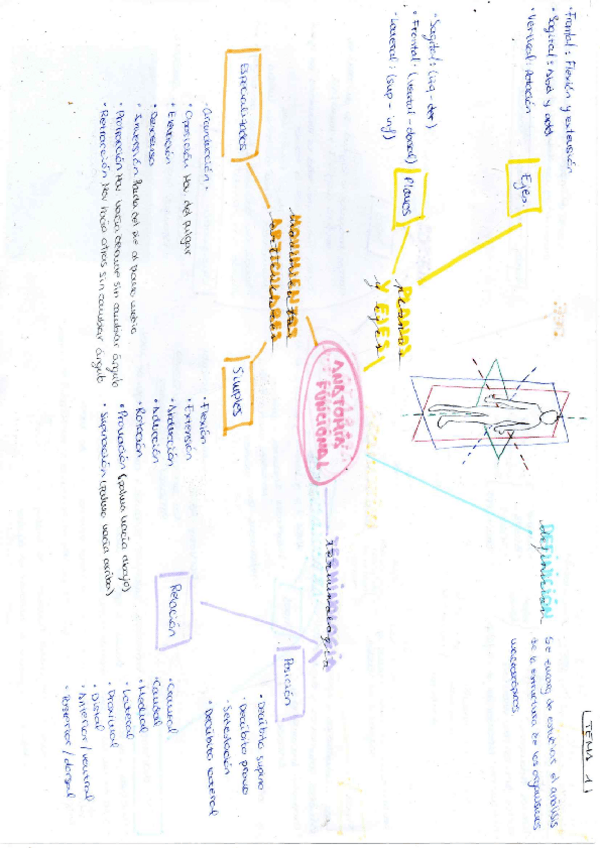 TEMA 1
DEFINICIÓN
definición
Se encarga de estudiar el análisis
de la estructura de los organismos
macroscópicos
ANATOMÍA
FUNCIONAL
PLANOS
Y EJES
Ejes
· Frontal: Flexión y extensión
· Sagital: Abd y add
· Vertical: Rotación
Planos
· Sagital: (izq - der)
· Frontal: (ventral - dorsal)
· Lateral: (sup - inf)
MOVIMIENTOS
ARTICULARES
Especializados
· Circunducción
· Oposición Mov del pulgar
· Elevación
· Descenso
· Inversión Planta del pie al plano medio
· Protracción Mov hacia delante sin cambiar ángulo
· Retracción Mov hacia atras sin cambiar ángulo
Simples
· Flexión
· Extensión
· Abducción
· Aducción
· Rotación
· Pronación (palma hacia abajo)
· Supinación (palma hacia arriba)
TERMINOLOGÍA
terminología
Posición
· Decúbito supino
· Decúbito prono
· Sedestación
· Decúbito lateral
Relación
· Craneal
· Caudal
· Medial
· Lateral
· Proximal
· Distal
· Anterior / ventral
· Posterior / dorsal